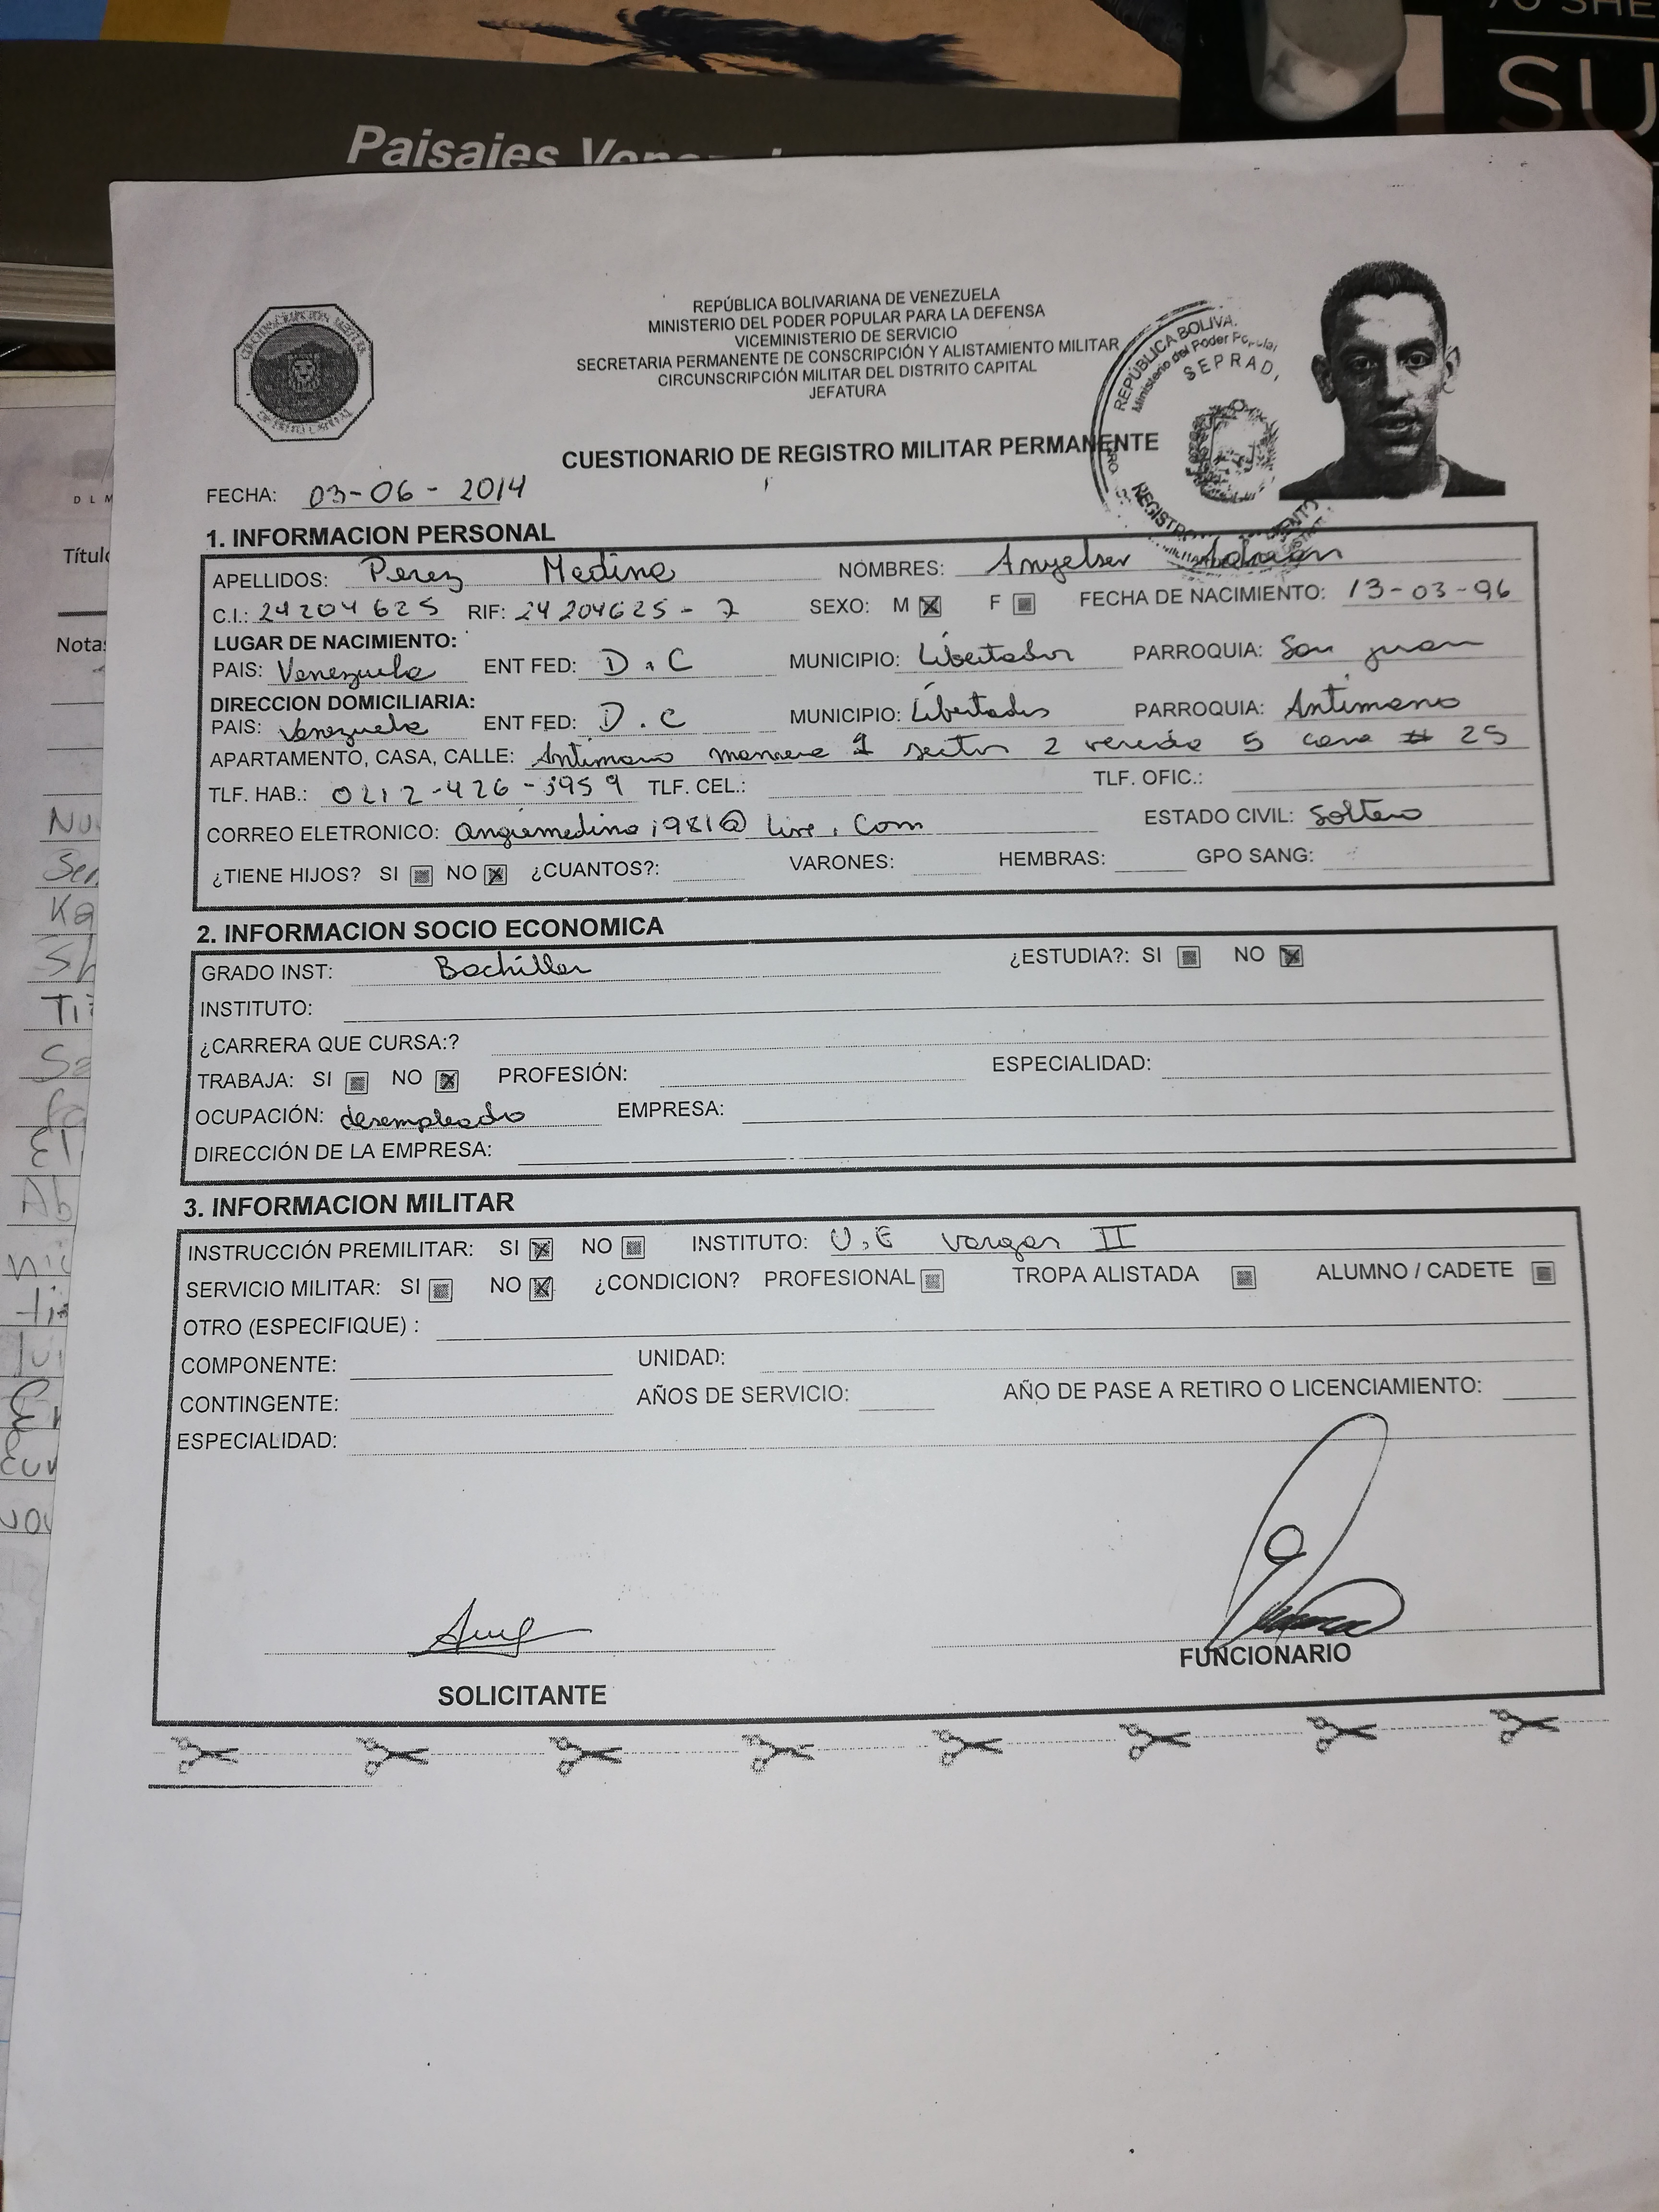 Paisajes
SU
REPÚBLICA BOLIVARIANA DE VENEZUELA
MINISTERIO DEL PODER POPULAR PARA LA DEFENSA
VICEMINISTERIO DE SERVICIO
SECRETARIA PERMANENTE DE CONSCRIPCIÓN Y ALISTAMIENTO MILITAR
CIRCUNSCRIPCIÓN MILITAR DEL DISTRITO CAPITAL
JEFATURA
REPÚBLICA BOLIVA
Ministerio del Poder Popular
SEPRAD
CUESTIONARIO DE REGISTRO MILITAR PERMANENTE
FECHA: 03-06-2014
1. INFORMACION PERSONAL
APELLIDOS: Perez Medina NOMBRES: Anyelser Adrian
C.I.: 24204625 RIF: 24204625-7 SEXO: M F FECHA DE NACIMIENTO: 13-03-96
LUGAR DE NACIMIENTO:
PAIS: Venezuela ENT FED: D.C MUNICIPIO: Libertador PARROQUIA: San Juan
DIRECCION DOMICILIARIA:
PAIS: Venezuela ENT FED: D.C MUNICIPIO: Libertador PARROQUIA: Antimano
APARTAMENTO, CASA, CALLE: Antimano 1 sector 2 vereda 5 casa # 25
TLF. HAB.: 0212-426-3959 TLF. CEL.: TLF. OFIC.:
CORREO ELETRONICO: angiemedina1981@live.com ESTADO CIVIL: Soltero
¿TIENE HIJOS? SI NO ¿CUANTOS?: VARONES: HEMBRAS: GPO SANG:
2. INFORMACION SOCIO ECONOMICA
GRADO INST: Bachiller ¿ESTUDIA?: SI NO
INSTITUTO:
¿CARRERA QUE CURSA:?
TRABAJA: SI NO PROFESIÓN: ESPECIALIDAD:
OCUPACIÓN: desempleado EMPRESA:
DIRECCIÓN DE LA EMPRESA:
3. INFORMACION MILITAR
INSTRUCCIÓN PREMILITAR: SI NO INSTITUTO: U.E Vargas II
SERVICIO MILITAR: SI NO ¿CONDICION? PROFESIONAL TROPA ALISTADA ALUMNO / CADETE
OTRO (ESPECIFIQUE) :
COMPONENTE: UNIDAD:
CONTINGENTE: AÑOS DE SERVICIO: AÑO DE PASE A RETIRO O LICENCIAMIENTO:
ESPECIALIDAD:
FUNCIONARIO
SOLICITANTE